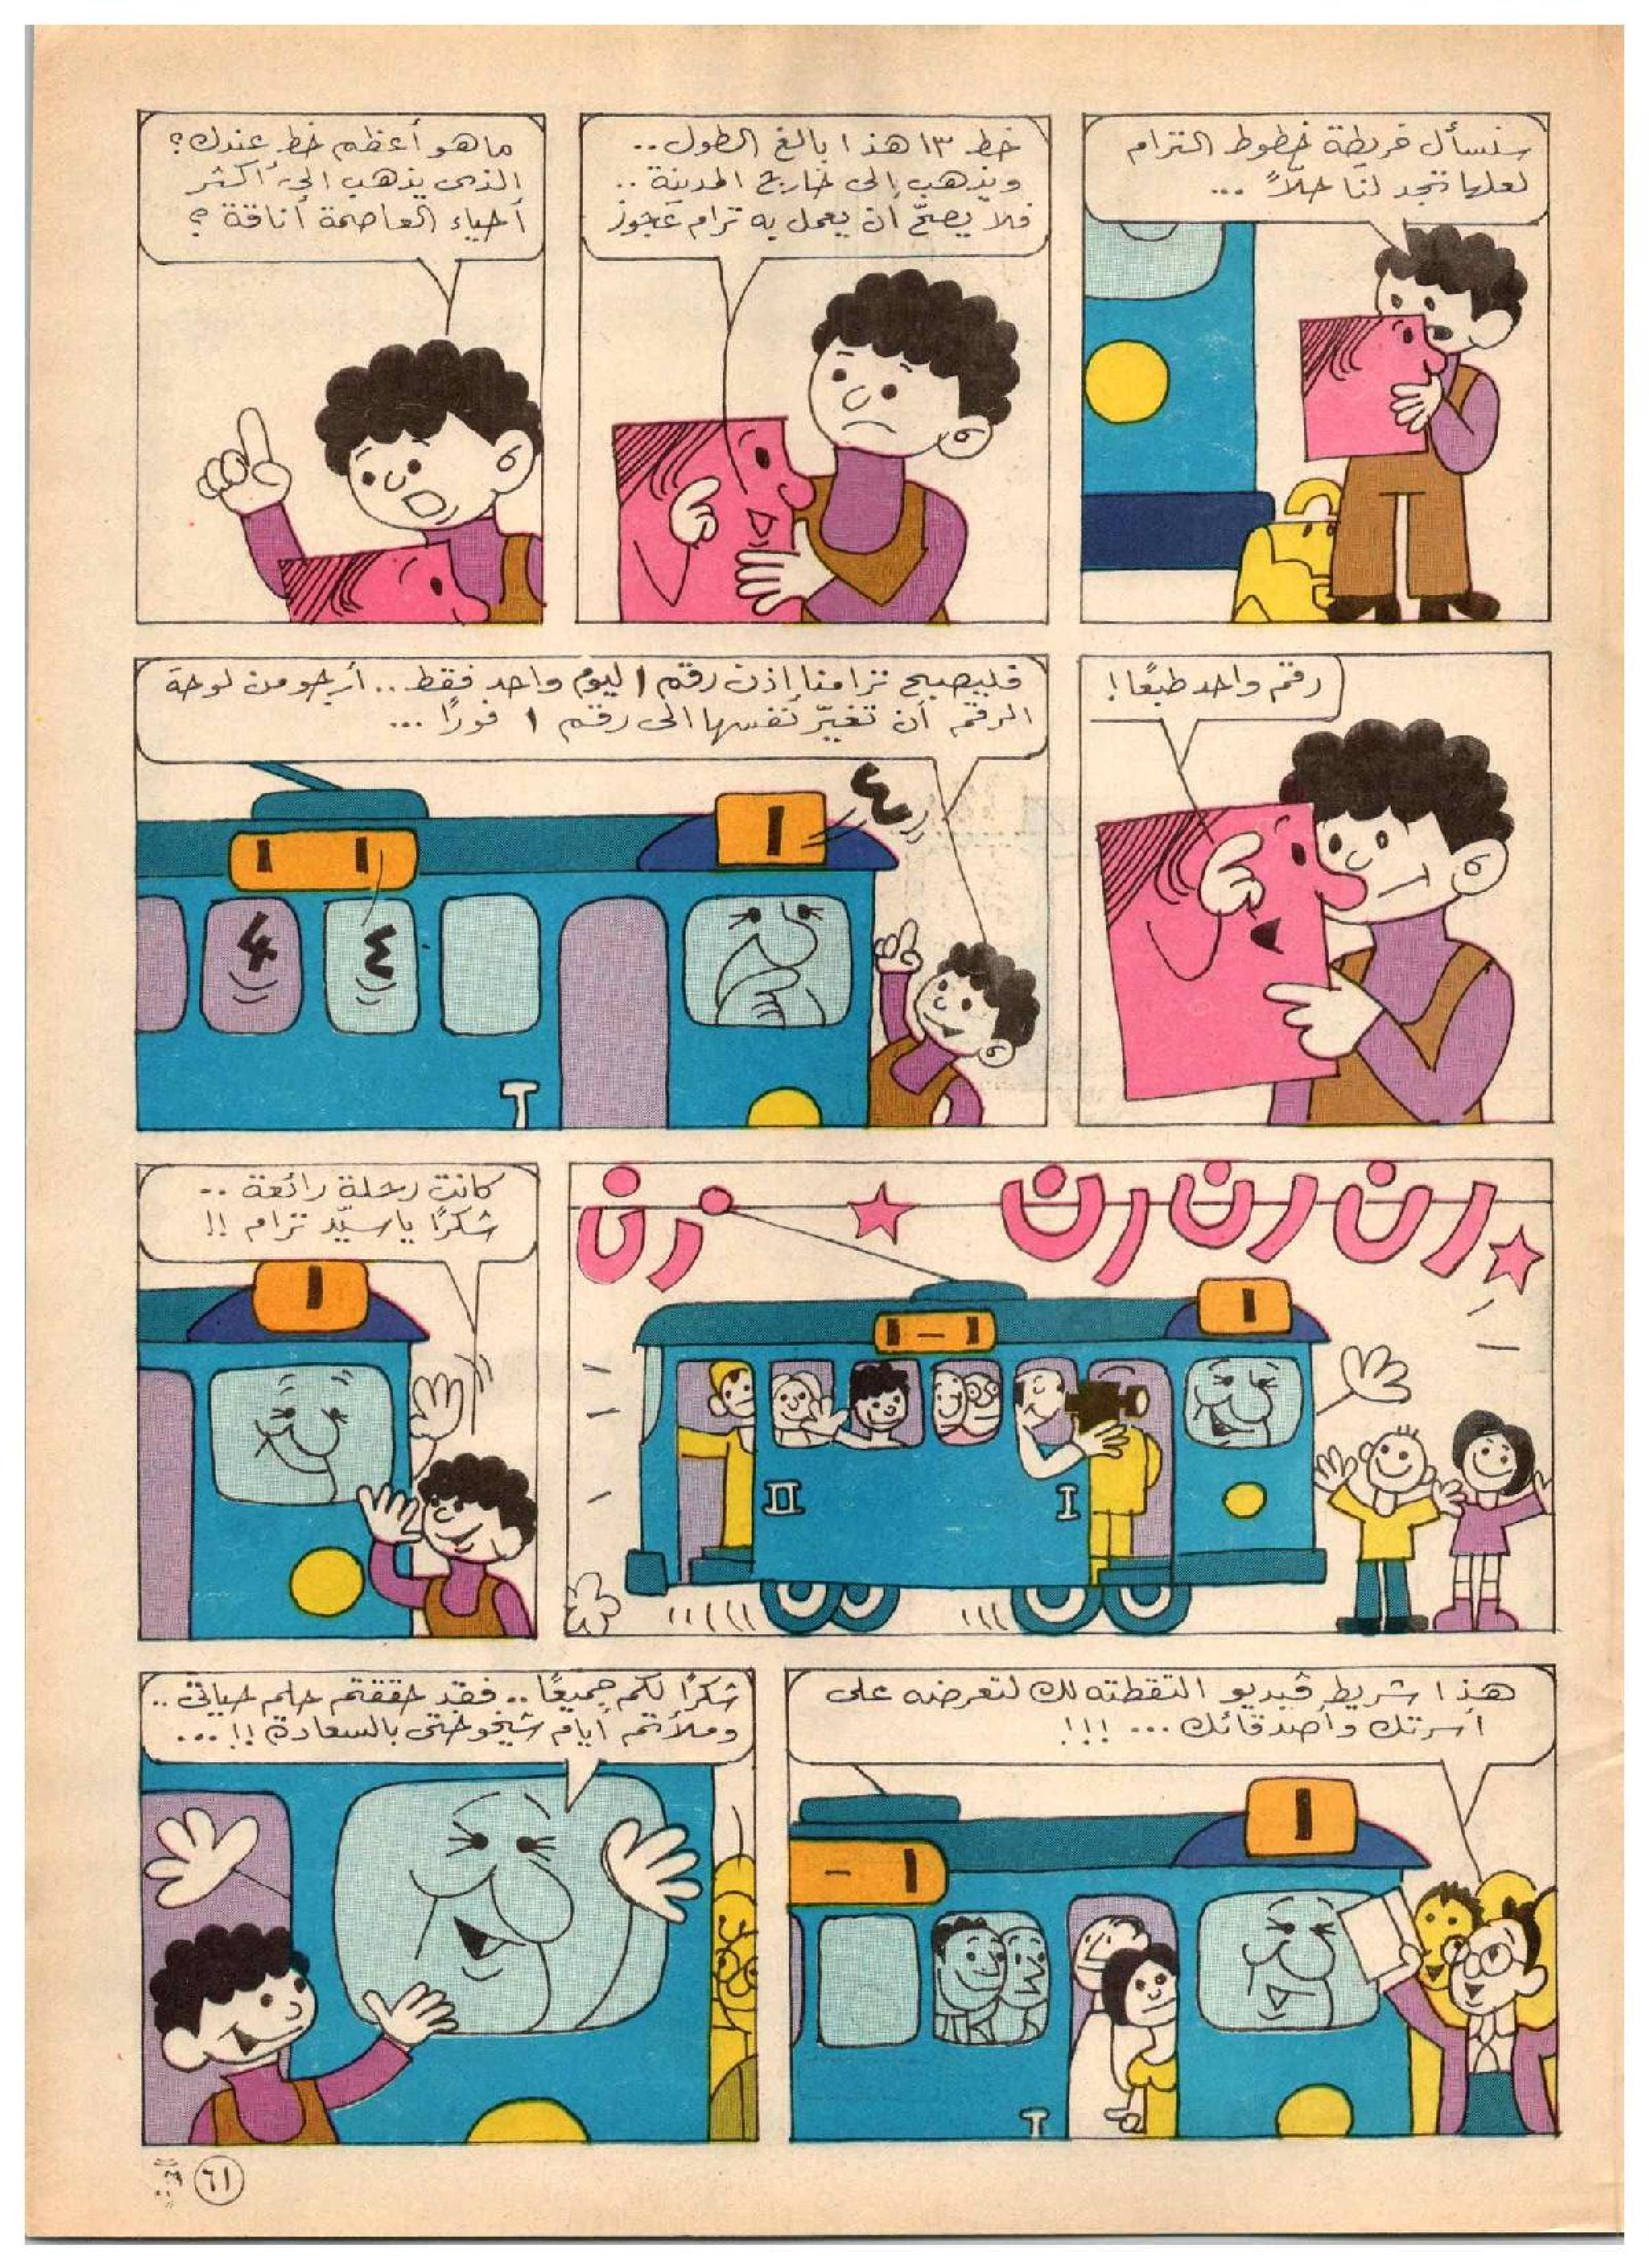 سنسأل خريطة خطوط الترام
لعلها تجد لنا حلاً ...
خط ١٣ هذا بالغ الطول ..
ويذهب إلى خارج المدينة ..
فلا يصحّ أن يعمل به ترام عجوز
ما هو أعظم خط عندك؟
الذى يذهب إلى أكثر
أحياء العاصمة أناقة ؟
رقم واحد طبعًا !
فليصبح ترامنا إذن رقم ١ ليوم واحد فقط .. أرجو من لوحة
الرقم أن تغيّر نفسها الى رقم ١ فورًا ...
٤
١
١ ١
٤ ٤
I
رن رن رن رن
١
١ - ١
II I
كانت رحلة رائعة ..
شكرًا يا سيّد ترام !!
١
هذا شريط ڤيديو التقطته لك لتعرضه على
أسرتك وأصدقائك ... !!!
١
١ -
I
شكرًا لكم جميعًا .. فقد حققتم حلم حياتى ..
وملأتم أيام شيخوختى بالسعادة !! ...
٦١